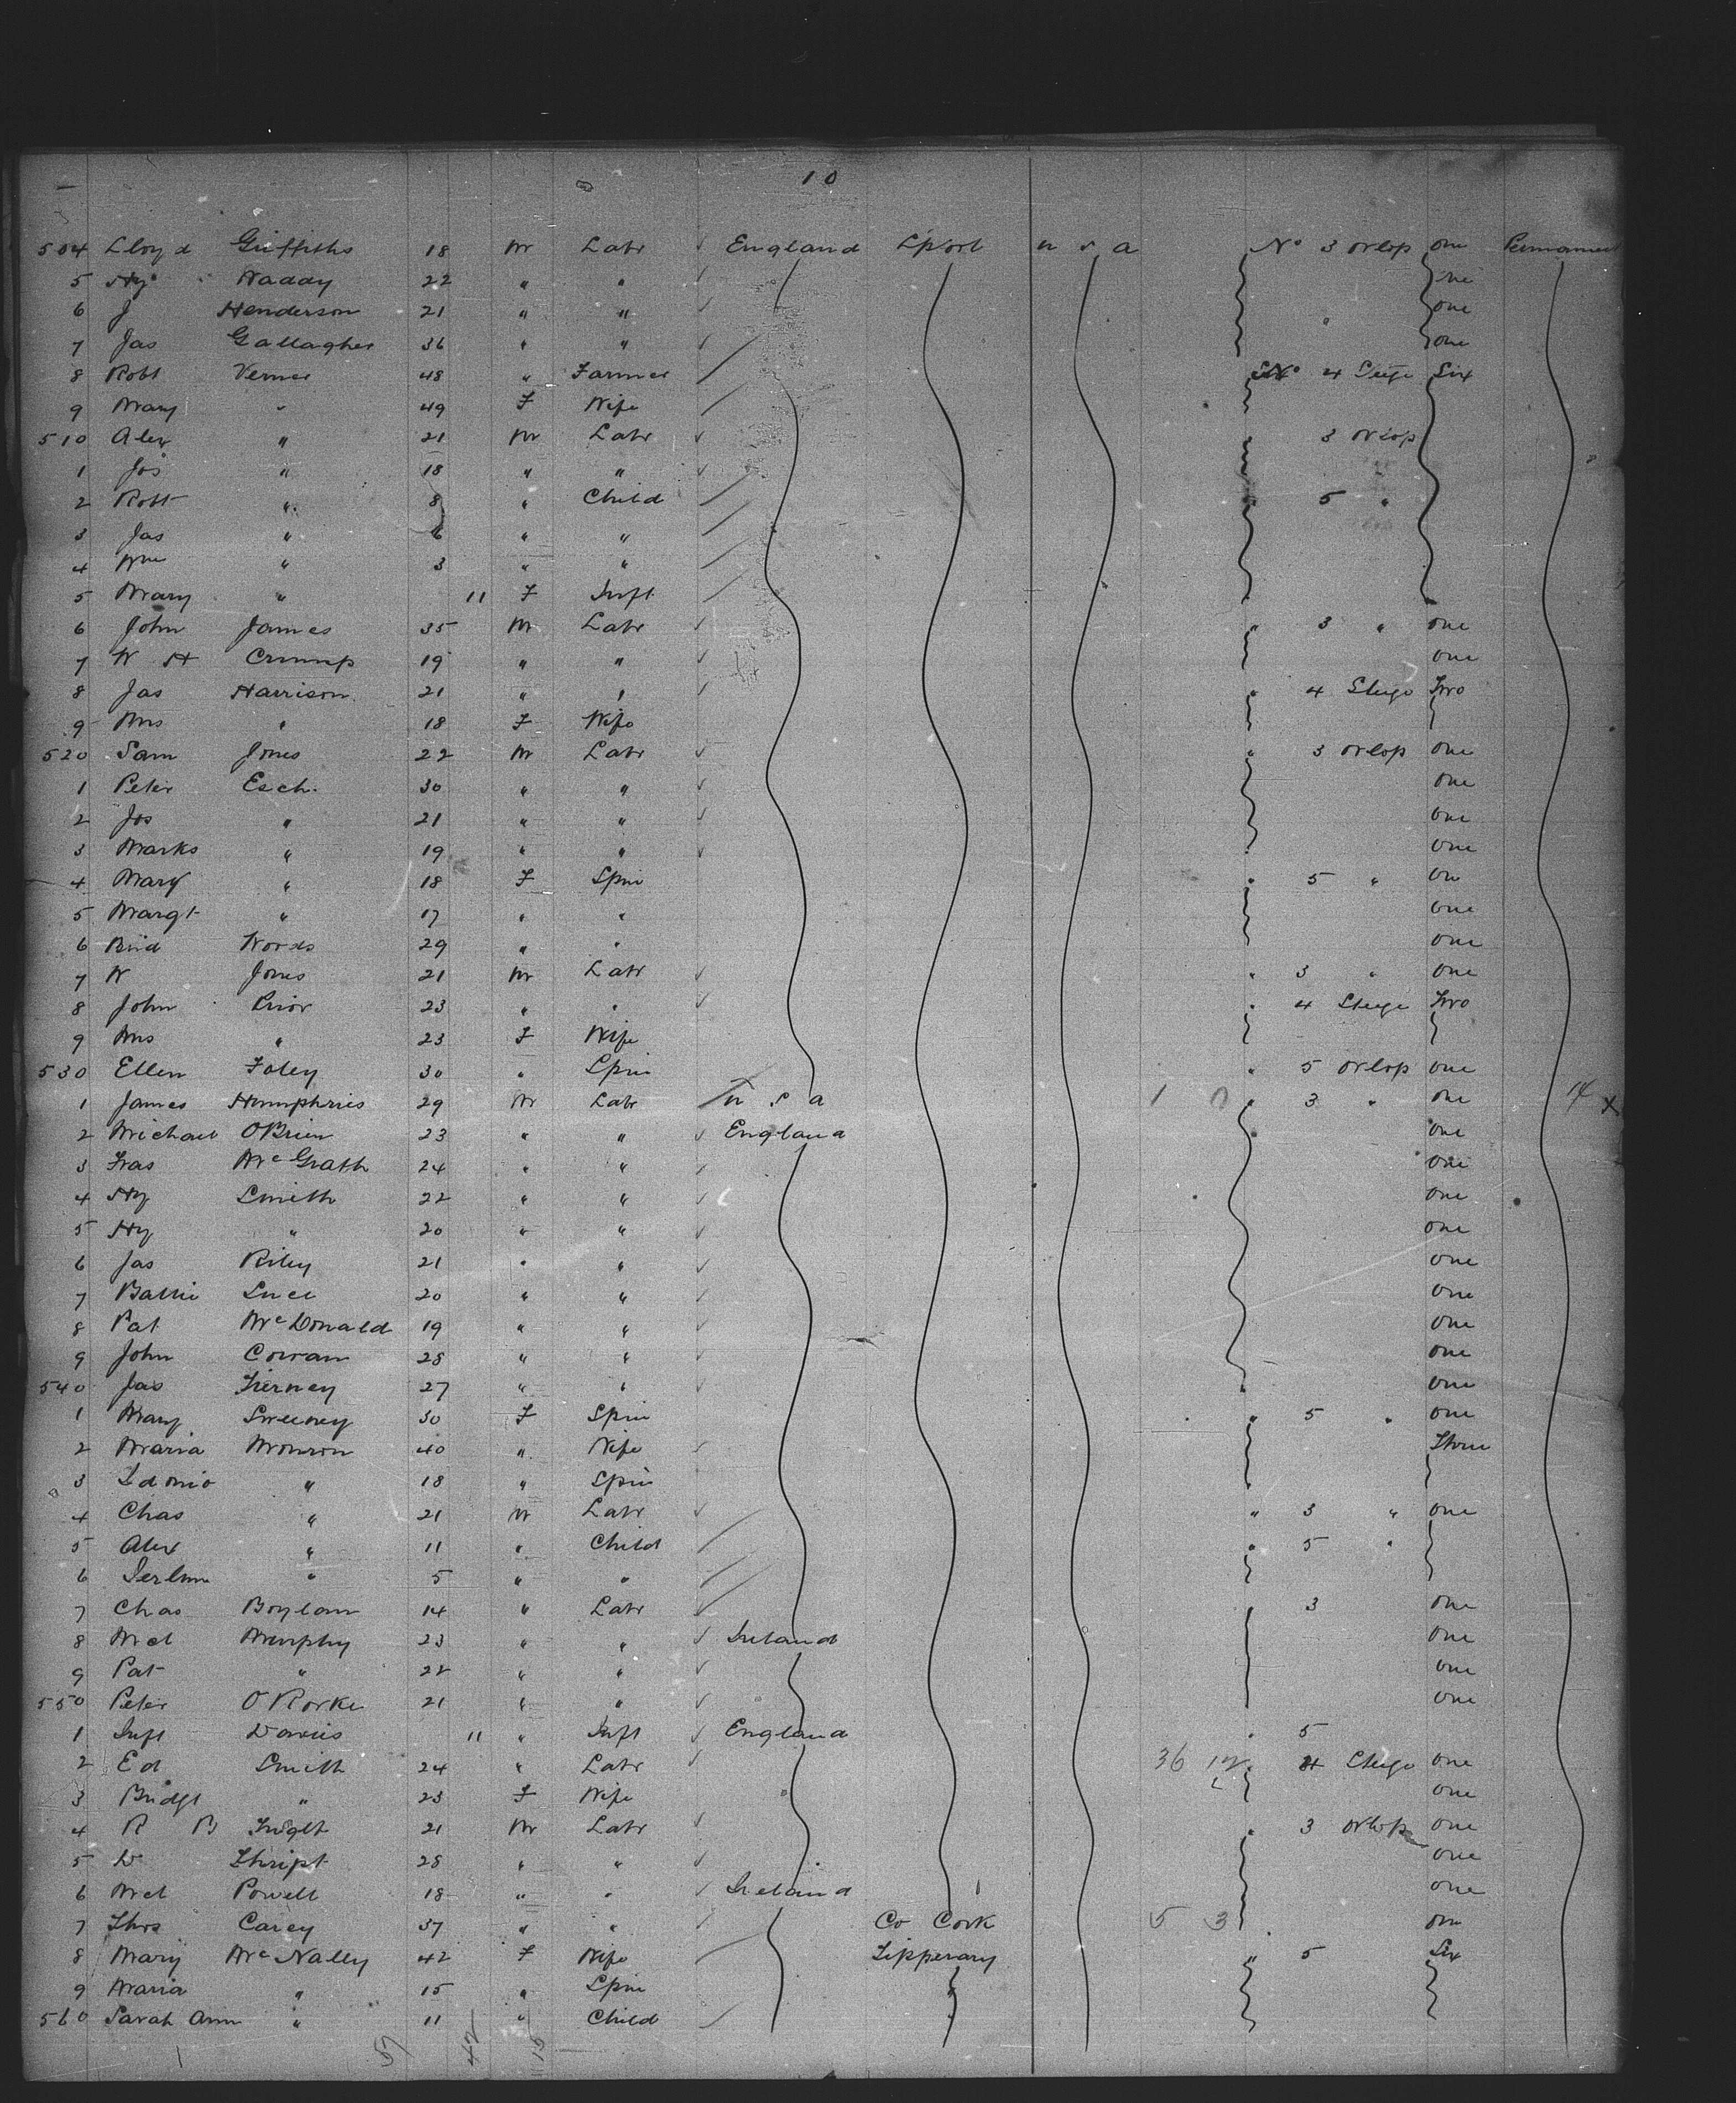 10
504 Lloyd Griffiths 18 M Labr England L'pool U S A No 3 Orlop one Permanent
5 Hy Waddy 22 " " one
6 J Henderson 21 " " " one
7 Jas Gallagher 36 " " one
8 Robt Verner 48 " Farmer No 4 Steege Six
9 Mary " 49 F Wife
510 Alex " 21 M Labr 3 Orlop
1 Jos " 18 " "
2 Robt " 8 " Child 5 "
3 Jas " 6 " "
4 Wm " 3 " "
5 Mary " 11 F Inft
6 John James 35 M Labr " 3 " one
7 W H Crump 19 " " one
8 Jas Harrison 21 " " " 4 Steege Two
9 Mrs " 18 F Wife
520 Sam Jones 22 M Labr " 3 Orlop one
1 Peter Esch 30 " " one
2 Jos " 21 " " one
3 Marks " 19 " " one
4 Mary " 18 F Spin " 5 " one
5 Margt " 17 " " one
6 Woods 29 " " one
7 W Jones 21 M Labr " 3 " one
8 John Prior 23 " " " 4 Steege Two
9 Mrs " 23 F Wife
530 Ellen Foley 30 " Spin " 5 Orlop one
1 James Humphries 29 M Labr U S A 1 0 " 3 " one X
2 Michael OBrien 23 " " England one
3 Fras McGrath 24 " " one
4 Hy Smith 22 " " one
5 Hy " 20 " " one
6 Jas Riley 21 " " one
7 20 " " one
8 Pat McDonald 19 " " one
9 John Cowan 28 " " one
540 Jas Tierney 27 " " one
1 Mary Sweeney 30 F Spin " 5 " one
2 Maria 40 " Wife Three
3 " 18 " Spin
4 Chas " 21 M Labr " 3 " one
5 Alex " 11 " Child " 5 "
6 " 5 " "
7 Chas Boylan 14 " Labr 3 one
8 Mcl Murphy 23 " " Ireland one
9 Pat " 22 " " one
550 Peter O'Rorke 21 " " one
1 Inft Davies 11 " Inft England " 5
2 Ed Smith 24 " Labr 36 12 " 4 Steege one
3 Bridgt " 23 F Wife one
4 R B 21 M Labr " 3 Orlop one
5 Thript 28 " " one
6 Mcl Powell 18 " " Ireland one
7 Thos Carey 37 " " Co Cork 5 3 one
8 Mary McNally 42 F Wife Tipperary " 5 Six
9 Maria " 15 " Spin
560 Sarah Ann " 11 " Child
57 42 15